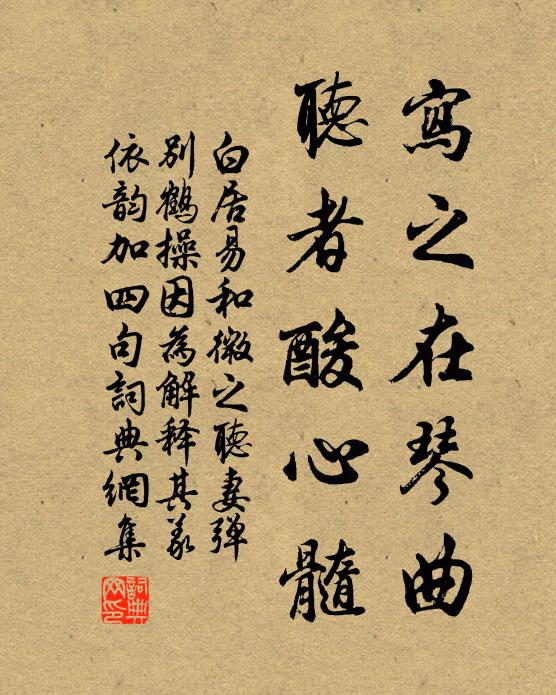 寫之在琴曲
聽者酸心髓
白居易和微之聽妻彈
別鶴操因為解释其義
依韵加四句詞典網集
詞典
网印